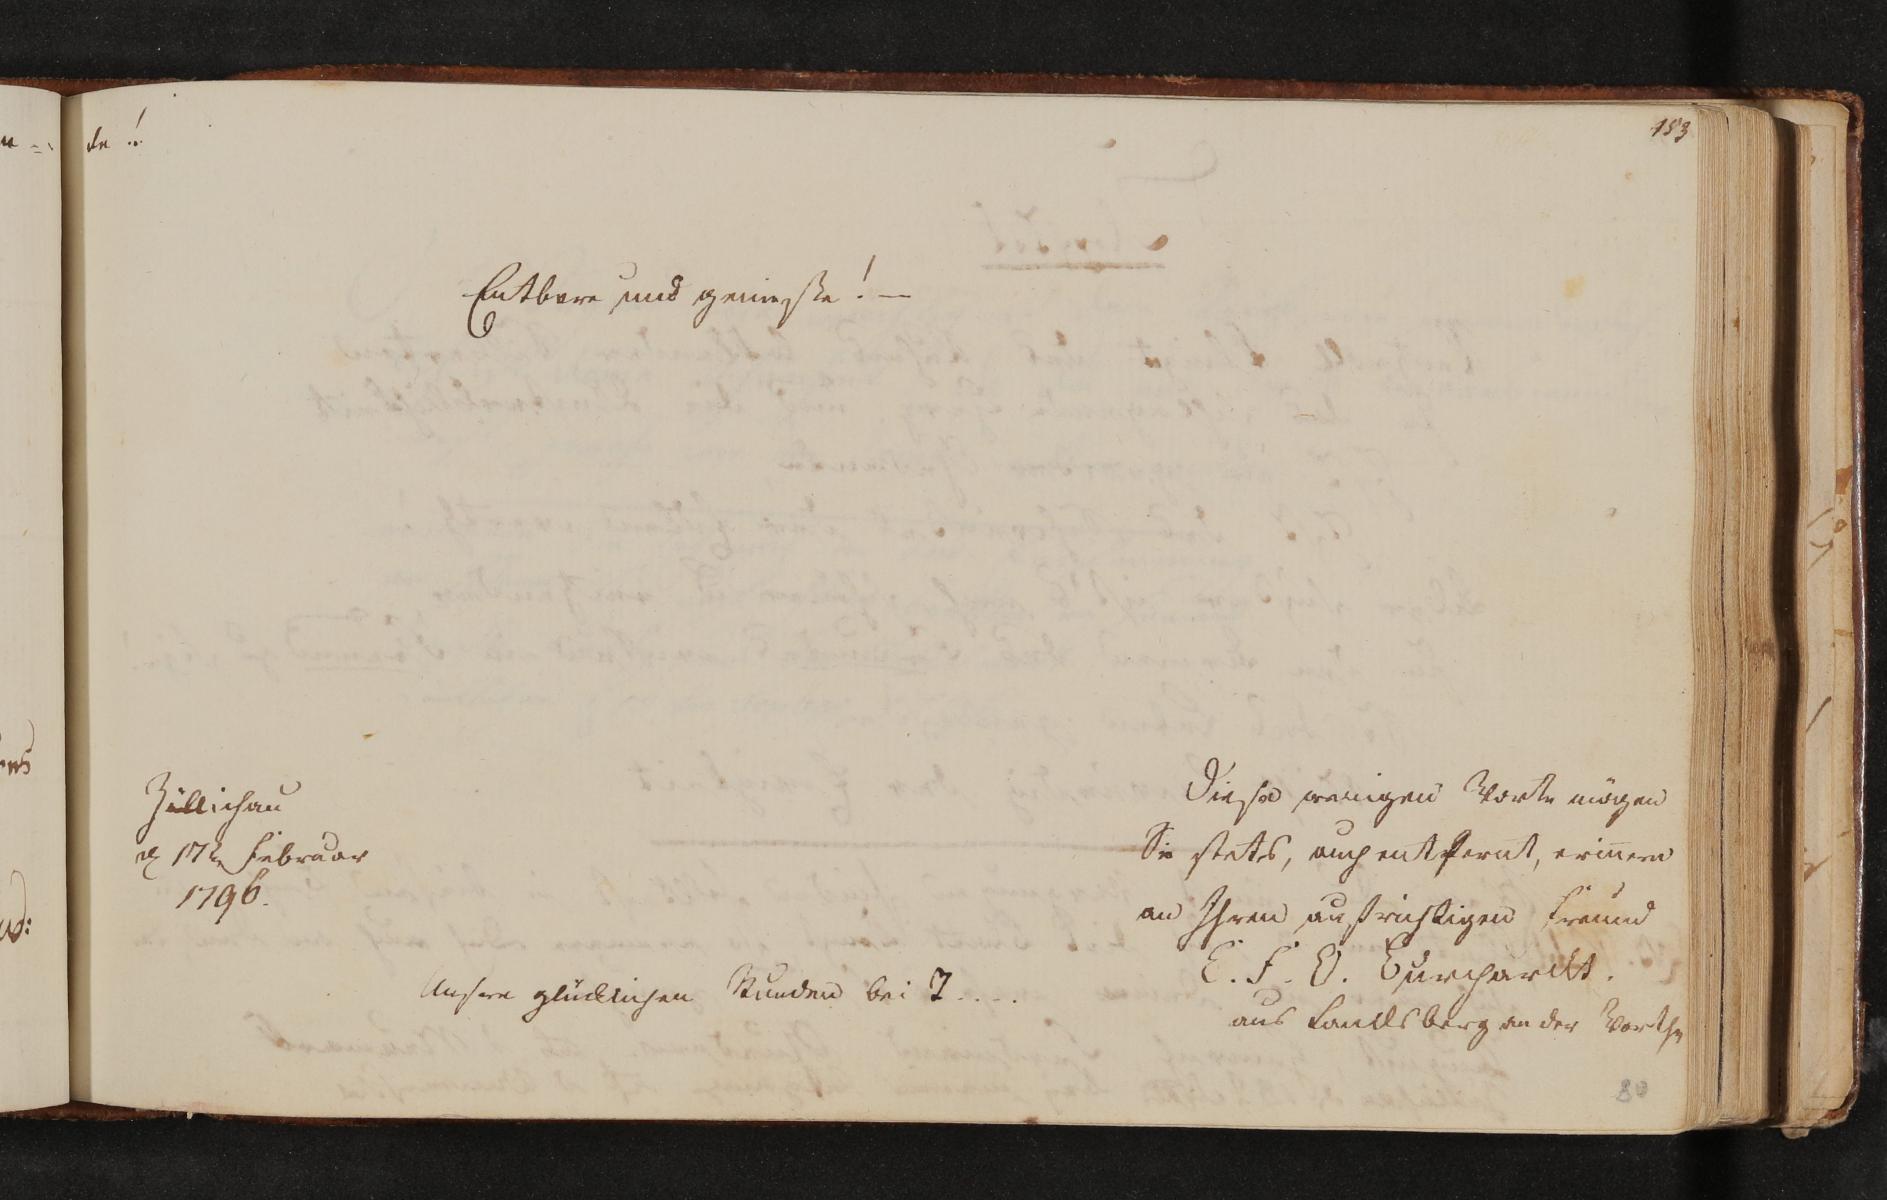 de!
183
Entbere und geniesse! —
Züllichau
d 17t Februar
1796.
Diese wenigen Worte mögen
Sie stets, auch entfernt, erinnern
an Ihren aufrichtigen Freund
E. F. O. Burchardt.
aus Landsberg an der Warthe
Unsere glücklichen Stunden bei J....
80